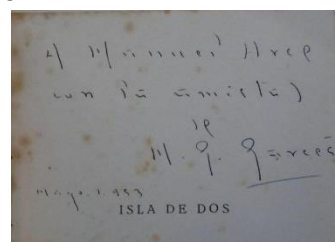 A Manuel Arce
con la amistad
de
M. G. Garcés
Mayo. 1953
ISLA DE DOS